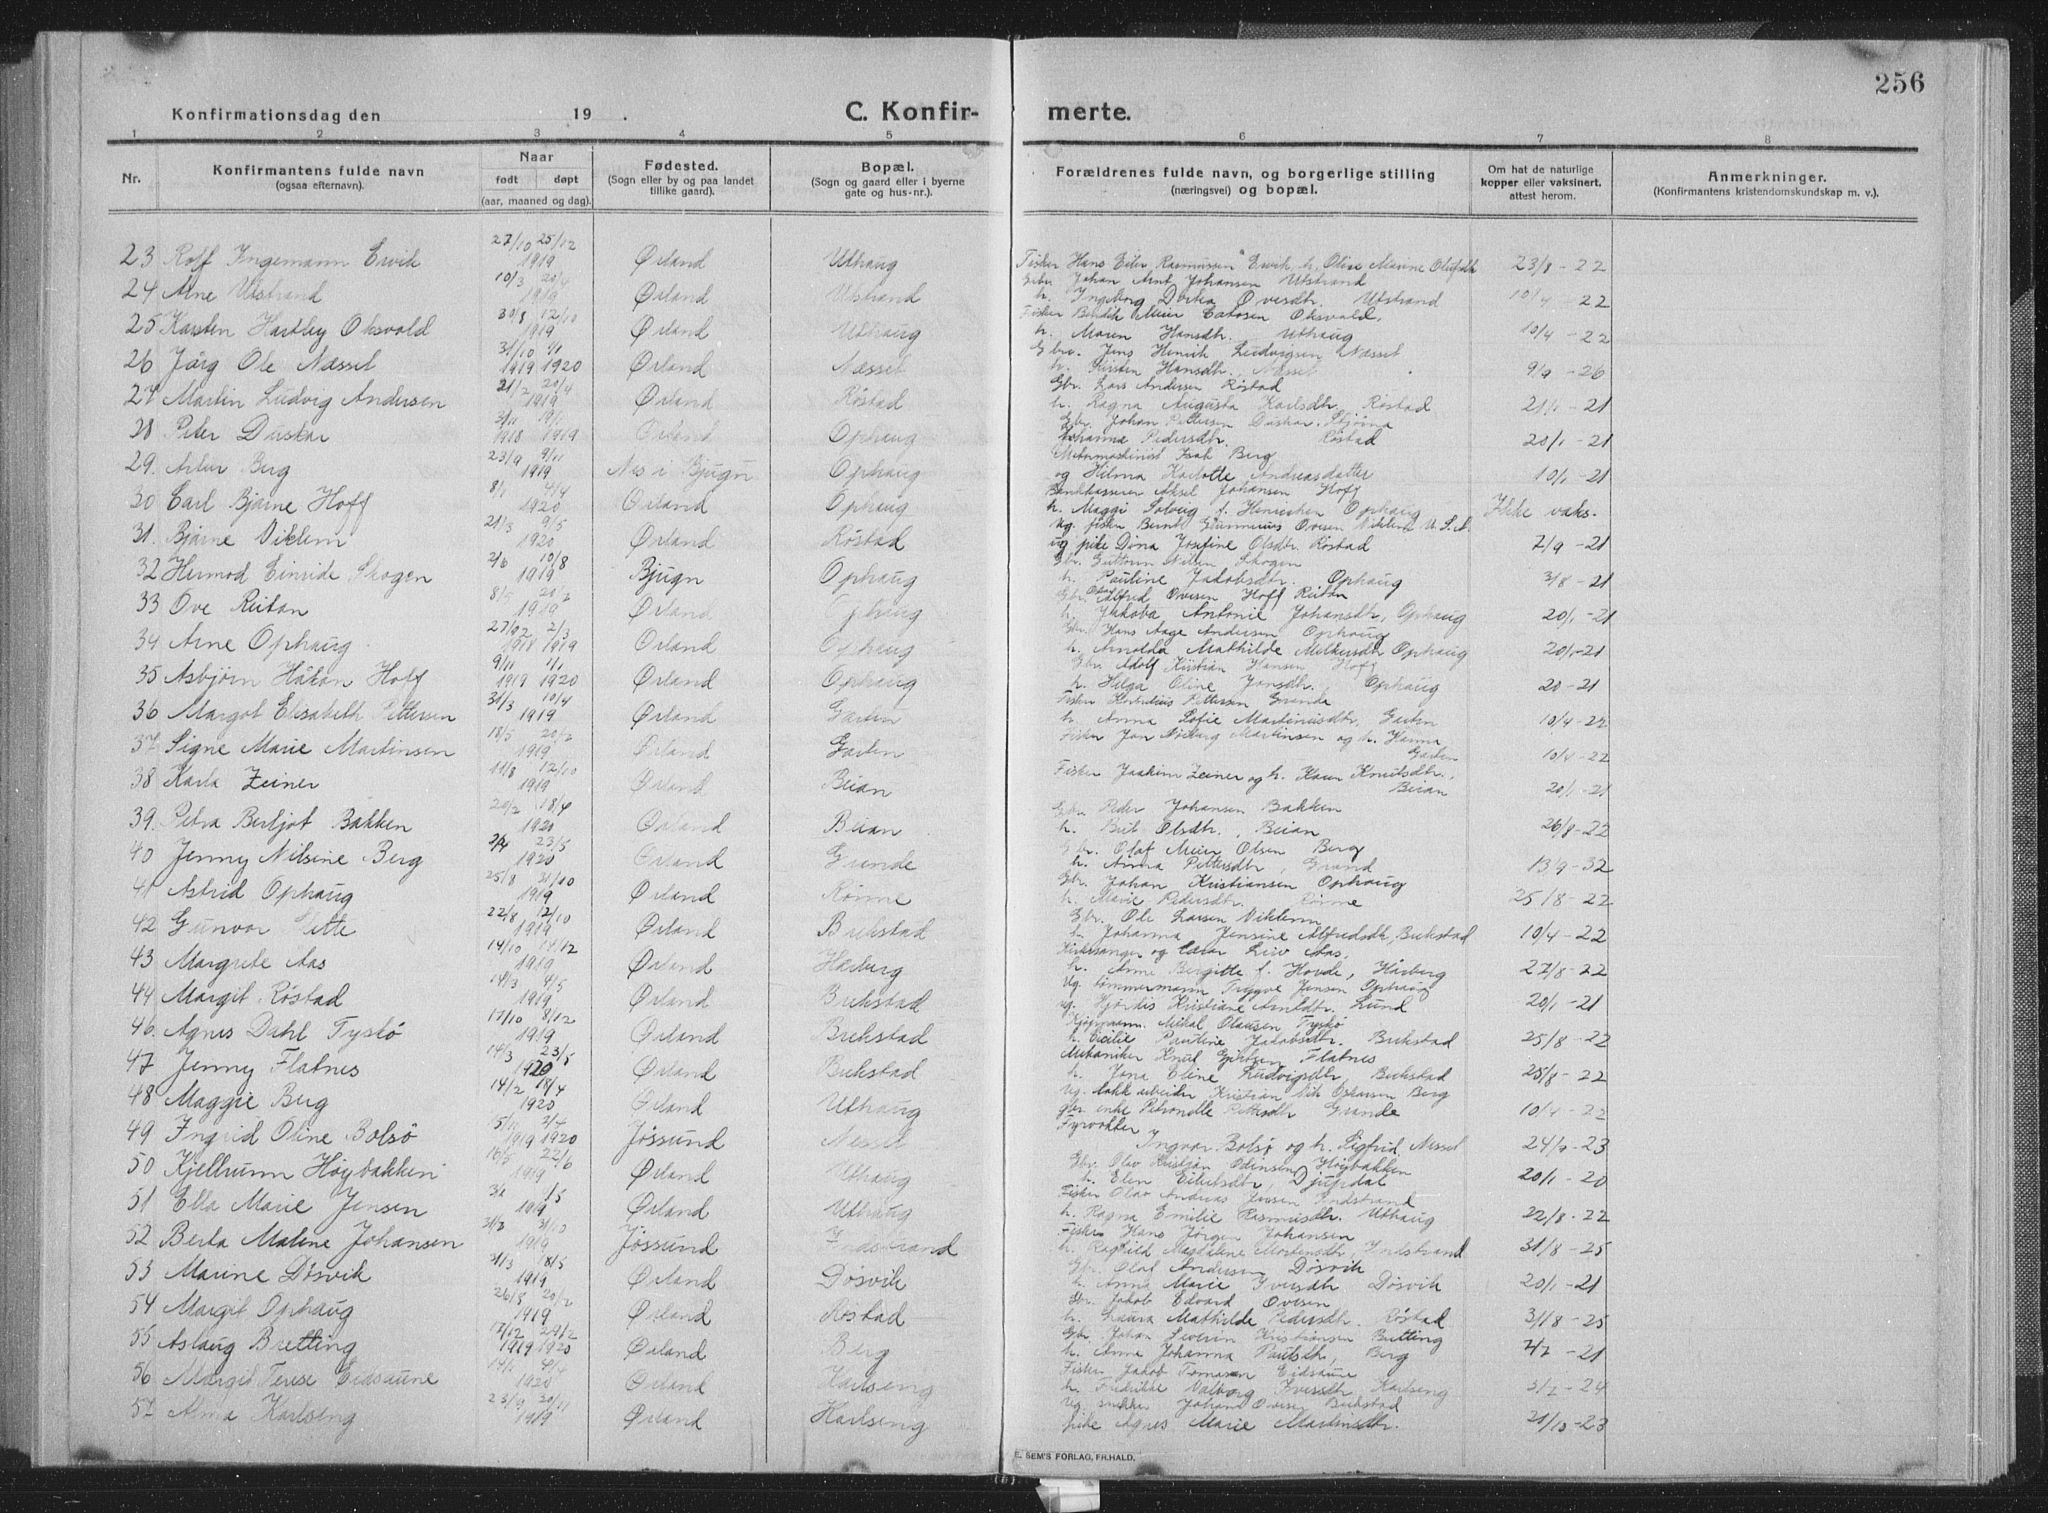 256
Konfirmationsdag den 19 . C. Konfir- merte.
1 2 3 4 5 6 7 8
Nr. Konfirmantens fulde navn (ogsaa efternavn). Naar født døpt (aar, maaned og dag). Fødested. (Sogn eller by og paa landet tillike gaard). Bopæl. (Sogn og gaard eller i byerne gate og hus-nr.). Forældrenes fulde navn, og borgerlige stilling (næringsvei) og bopæl. Om hat de naturlige kopper eller vaksinert, attest herom. Anmerkninger. (Konfirmantens kristendomskundskap m. v.).
23 Rolf Ingemann Ervik 27/10 25/12 1919 Ørland Uthaug Fisker Hans Eiler Rasmussen Ervik h. Oline Marine Olufsdtr 23/8-22
24 Arne Utstrand 10/3 20/4 1919 Ørland Utstrand Gbr. Johan Arnt Johansen Utstrand h. Ingeborg Dortea Ovesdtr. Utstrand 10/4-22
25 Karsten Hartley Oksvold 30/8 12/10 1919 Ørland Uthaug Fisker Bendik Meier Oksvold, h. Maren Hansdtr. Uthaug 10/4-22
26 Jörg Ole Næsset 31/10 1919 1/1 1920 Ørland Næsset Gbr. Jens Henrik Ludvigsen Næsset h. Kirsten Hansdtr. Næsset 9/9-26
27 Martin Ludvig Andersen 21/2 20/4 1919 Ørland Röstad Gbr. Lars Andersen Röstad h. Ragna Augusta Karlsdtr. Röstad 21/1-21
28 Peter Duskar 1918 1919 Ørland Ophaug Gbr. Johan Pettersen Duskar, Johanna Pedersdtr. Röstad 20/1-21
29. Berg 23/9 9/11 1919 Nes i Bjugn Ophaug Isak Berg og Hilma Karlotte Andreasdatter 10/1-21
30 Carl Bjarne Hoff 8/1 4/4 1920 Ørland Ophaug Aksel Johansen Hoff h. Maggi Solveig f. Ophaug Ikke vaks.
31. Bjarne Viklem 21/3 9/5 1920 Ørland Röstad Ug. fisker Bernt Gunnerius Ovesen Viklem U.S.A. ug pike Dina Josefine Olsdtr. Röstad 7/9-21
32 Hermod Einride Skogen 2/6 10/8 1919 Bjugn Ophaug Gbr. Guttorm Nilsen Skogen h. Pauline Jakobsdtr. Ophaug 3/8-21
33 Ove Reitan 8/5 20/7 1919 Ørland Ophaug Gbr. Alfred Ovesen Hoff Reitan h. Jakoba Antonie Johansdtr, Ophaug 20/1-21
34 Arne Ophaug 1918 2/3 1919 Ørland Ophaug Gbr. Hans Aage Andersen Ophaug h. Arnolda Mathilde Ophaug 20/1-21
35 Asbjörn Håkon Hoff 9/11 1919 1/1 1920 Ørland Ophaug Gbr Adolf Kristian Hansen Hoff h. Helga Oline Jensdtr. Ophaug 20-21
36 Margot Elisabeth Pettersen 31/3 10/4 1919 Ørland Garten Fisker Pettersen Grande h. Anna Sofie Martiniusdtr. Garten 10/4-22
37 Signe Marie Martinsen 18/5 20/7 1919 Ørland Garten Fisker Jon Martinsen og h. Hanna Garten 10/4-22
38 Karla Zeiner 11/8 12/10 1919 Ørland Beian Fisker Joakim Zeiner og h. Karen Knutsdtr. Beian 20/1-21
39. Petra Berljot Bakken 20/2 18/4 1920 Ørland Beian Gbr. Peder Johansen Bakken h. Brit Olsdtr. Beian 26/8-22
40 Jenny Nilsine Berg 23/5 1920 Ørland Grande Gbr. Olaf Meier Olsen Berg h. Anna Pettersdtr, Grand 13/9-32
41 Astrid Ophaug 25/8 21/10 1919 Ørland Rönne Gbr. Johan Kristiansen Ophaug h. Marie Pedersdtr. Rönne 25/8-22
42 Gunvor 22/8 12/10 1919 Ørland Brekstad Gbr. Ole Larsen Viklem h. Johanna Jensine Alfredsdtr, Brekstad 10/4-22
43 Margrete Aas 14/10 14/12 1919 Ørland Hårberg Kirkesanger og Lærer Aas, h. Anne Bergitte f. Hovde, Hårberg 27/8-22
44 Margit Röstad 14/3 4/5 1919 Ørland Brekstad Ug tömmermann Trygve Jensen Ophaug ug. Hjördis Kristiane Lund 20/1-21
46. Agnes Dahl Tyskö 17/10 8/12 1919 Ørland Brekstad Kjöpmann Mikal Olausen Tyskö h. Cecilie Pauline Jakobsdtr. Brekstad 25/8-22
47 Jenny Flatnes 14/3 23/5 1920 Ørland Brekstad Mekaniker Knut Flatnes h. Jona Eline Ludvigsdtr, Brekstad 25/8-22
48 Maggie Berg 14/2 18/4 1920 Ørland Uthaug Ug. Kristian Berg gbr. enke Petronelle Pettersdtr Grande 10/4-22
49 Ingrid Oline Bolsö 1919 1920 Jössund Nesset Fyrvokter Ingvar Bolsö og h. Sigfrid, Nesset 24/9-23
50 Kjellrunn Höybakken 16/5 22/6 1919 Ørland Uthaug Gbr. Olav Kristian Odinsen Höybakken h. Elen Eilertsdtr, Djupdal 20/1-20
51 Ella Marie Jensen 1919 Ørland Uthaug Fisker Olav Andreas Jensen Indstrand h. Ragna Emilie Rasmusdtr. Uthaug 22/8-22
52 Berta Malene Johansen 1919 Jössund Indstrand Fisker Hans Jörgen Johansen h. Ragnild Magdalene Mortensdtr, Indstrand 31/8-25
53 Marine Dösvik 31/3 18/5 1919 Ørland Dösvik Gbr. Olaf Andersen Dösvik h. Anna Marie Iversdtr Dösvik 20/1-21
54 Margit Ophaug 26/8 1919 Ørland Röstad Gbr. Jakob Edvard Ovesen h. Laura Mathilde Pedersdtr. Röstad 31/8-25
55 Aslaug Bretting 17/12 1919 29/2 1920 Ørland Berg Gbr. Johan Severin Kristiansen Bretting h. Anne Johanna Paulsdtr, Berg 7/7-21
56 Margit Terese Eidsaune 14/1 4/4 1920 Ørland Karlseng Fisker Jakob Tomasen Eidsaune h. Fredrikke Valborg Iversdtr Karlseng 3/7-24
57 Alma Karlseng 23/9 20/11 1919 Ørland Karlseng Ug. snekker Johan Ovesen Brekstad pike Agnes Marie Martinsdtr. 21/10-23
E. SEM'S FORLAG, FR.HALD.